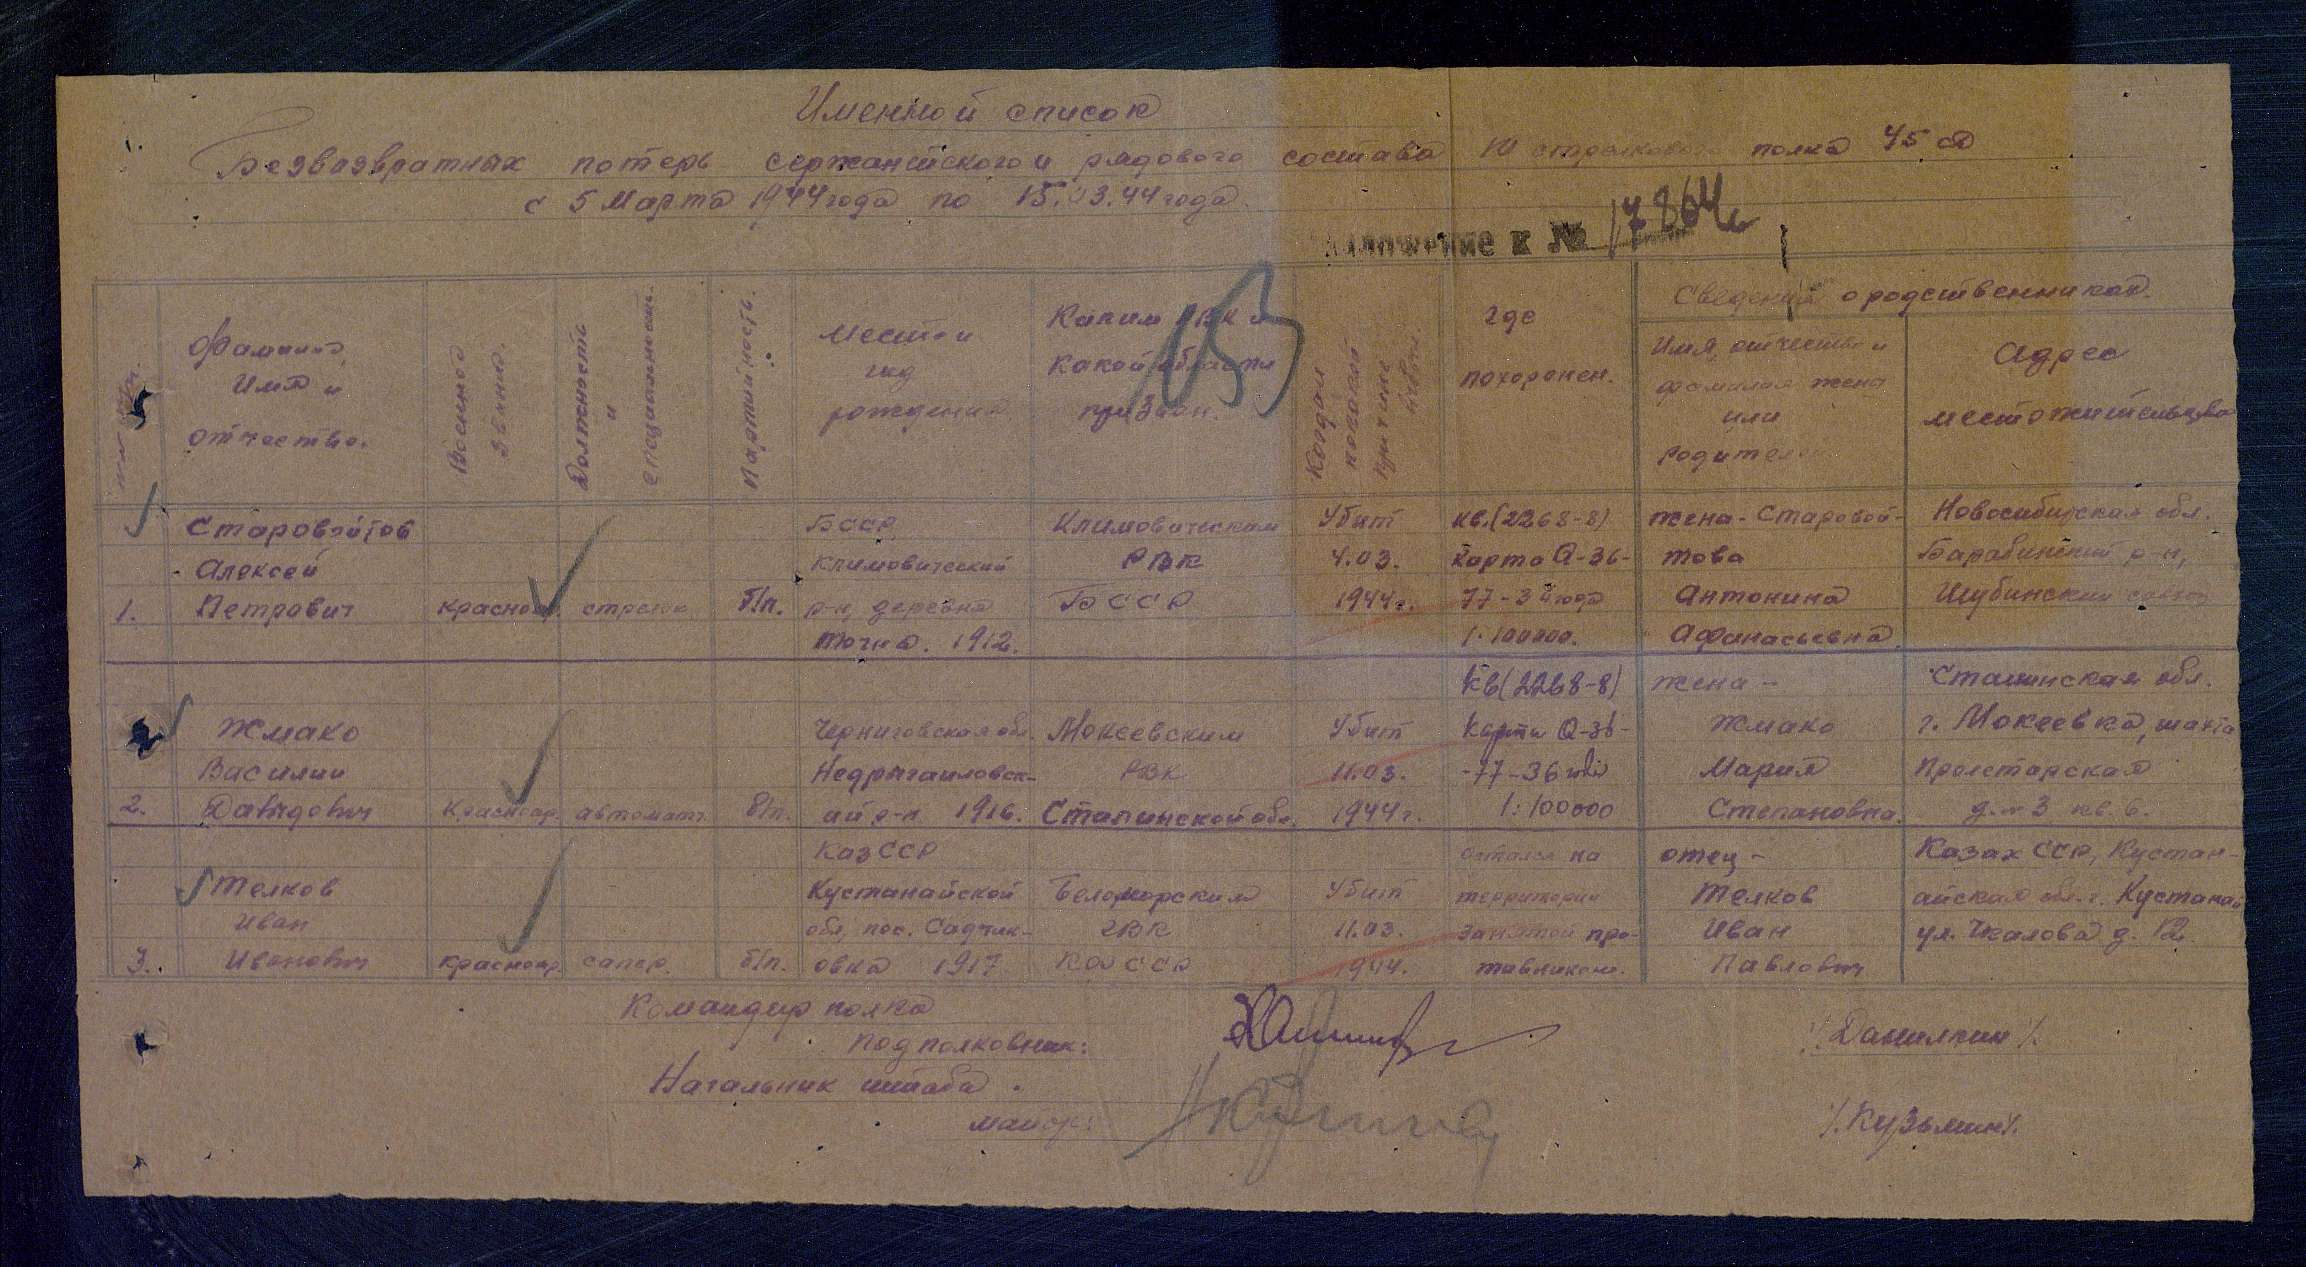 Именной список
Безвозвратных потерь сержантского и рядового состава 10 стрелкового полка 45 сд
с 5 Марта 1944 года по 15.03.44 года.
приложение к № 17864с
Фамилия Имя и отчество.
Военное звание.
Должность и специальность.
Партийность.
Место и год рождения
Каким РВК и какой области призван.
Когда и по какой причине
где похоронен.
Сведения о родственниках.
Имя, отчество и фамилия жена или родителей
Адрес местожительства
1.
Старовойтов
Алексей
Петрович
красноар.
стрелок
б/п.
БССР,
Климовический
р-н, деревня
1912.
Климовическим
РВК
БССР
Убит
4.03.
1944г.
кв.(2268-8)
карта Q-36-
1:100000.
жена - Старовой-
това
Антонина
Афанасьевна
Новосибирская обл.
Барабинский р-н,
Шубинский совхоз
2.
Жмако
Василий
Давыдович
Красноар.
автоматч.
б/п.
Черниговская обл.
Недригаиловск-
ий р-н 1916.
Мокеевским
РВК
Сталинской обл.
Убит
11.03.
1944г.
кв(2268-8)
Карта Q-36-
-77-36
1:100000
жена -
Жмако
Мария
Степановна.
Сталинская обл.
г. Мокеевка, шахта
Пролетарская
д. 3 кв. 6.
3.
Телков
Иван
Иванович
красноар.
сапер.
б/п.
Каз ССР
Кустанайской
обл, пос. Садчик-
овка 1917
Беломорским
РВК
КФССР
Убит
11.03.
1944.
остался на
территории
занятой про-
тивником.
отец -
Телков
Иван
Павлович
Казах ССР, Кустан-
айская обл. г. Кустанай
ул. Чкалова д. 12
Командир полка
подполковник:
/Данилкин/.
Начальник штаба.
майор:
/.Кузьмин/.